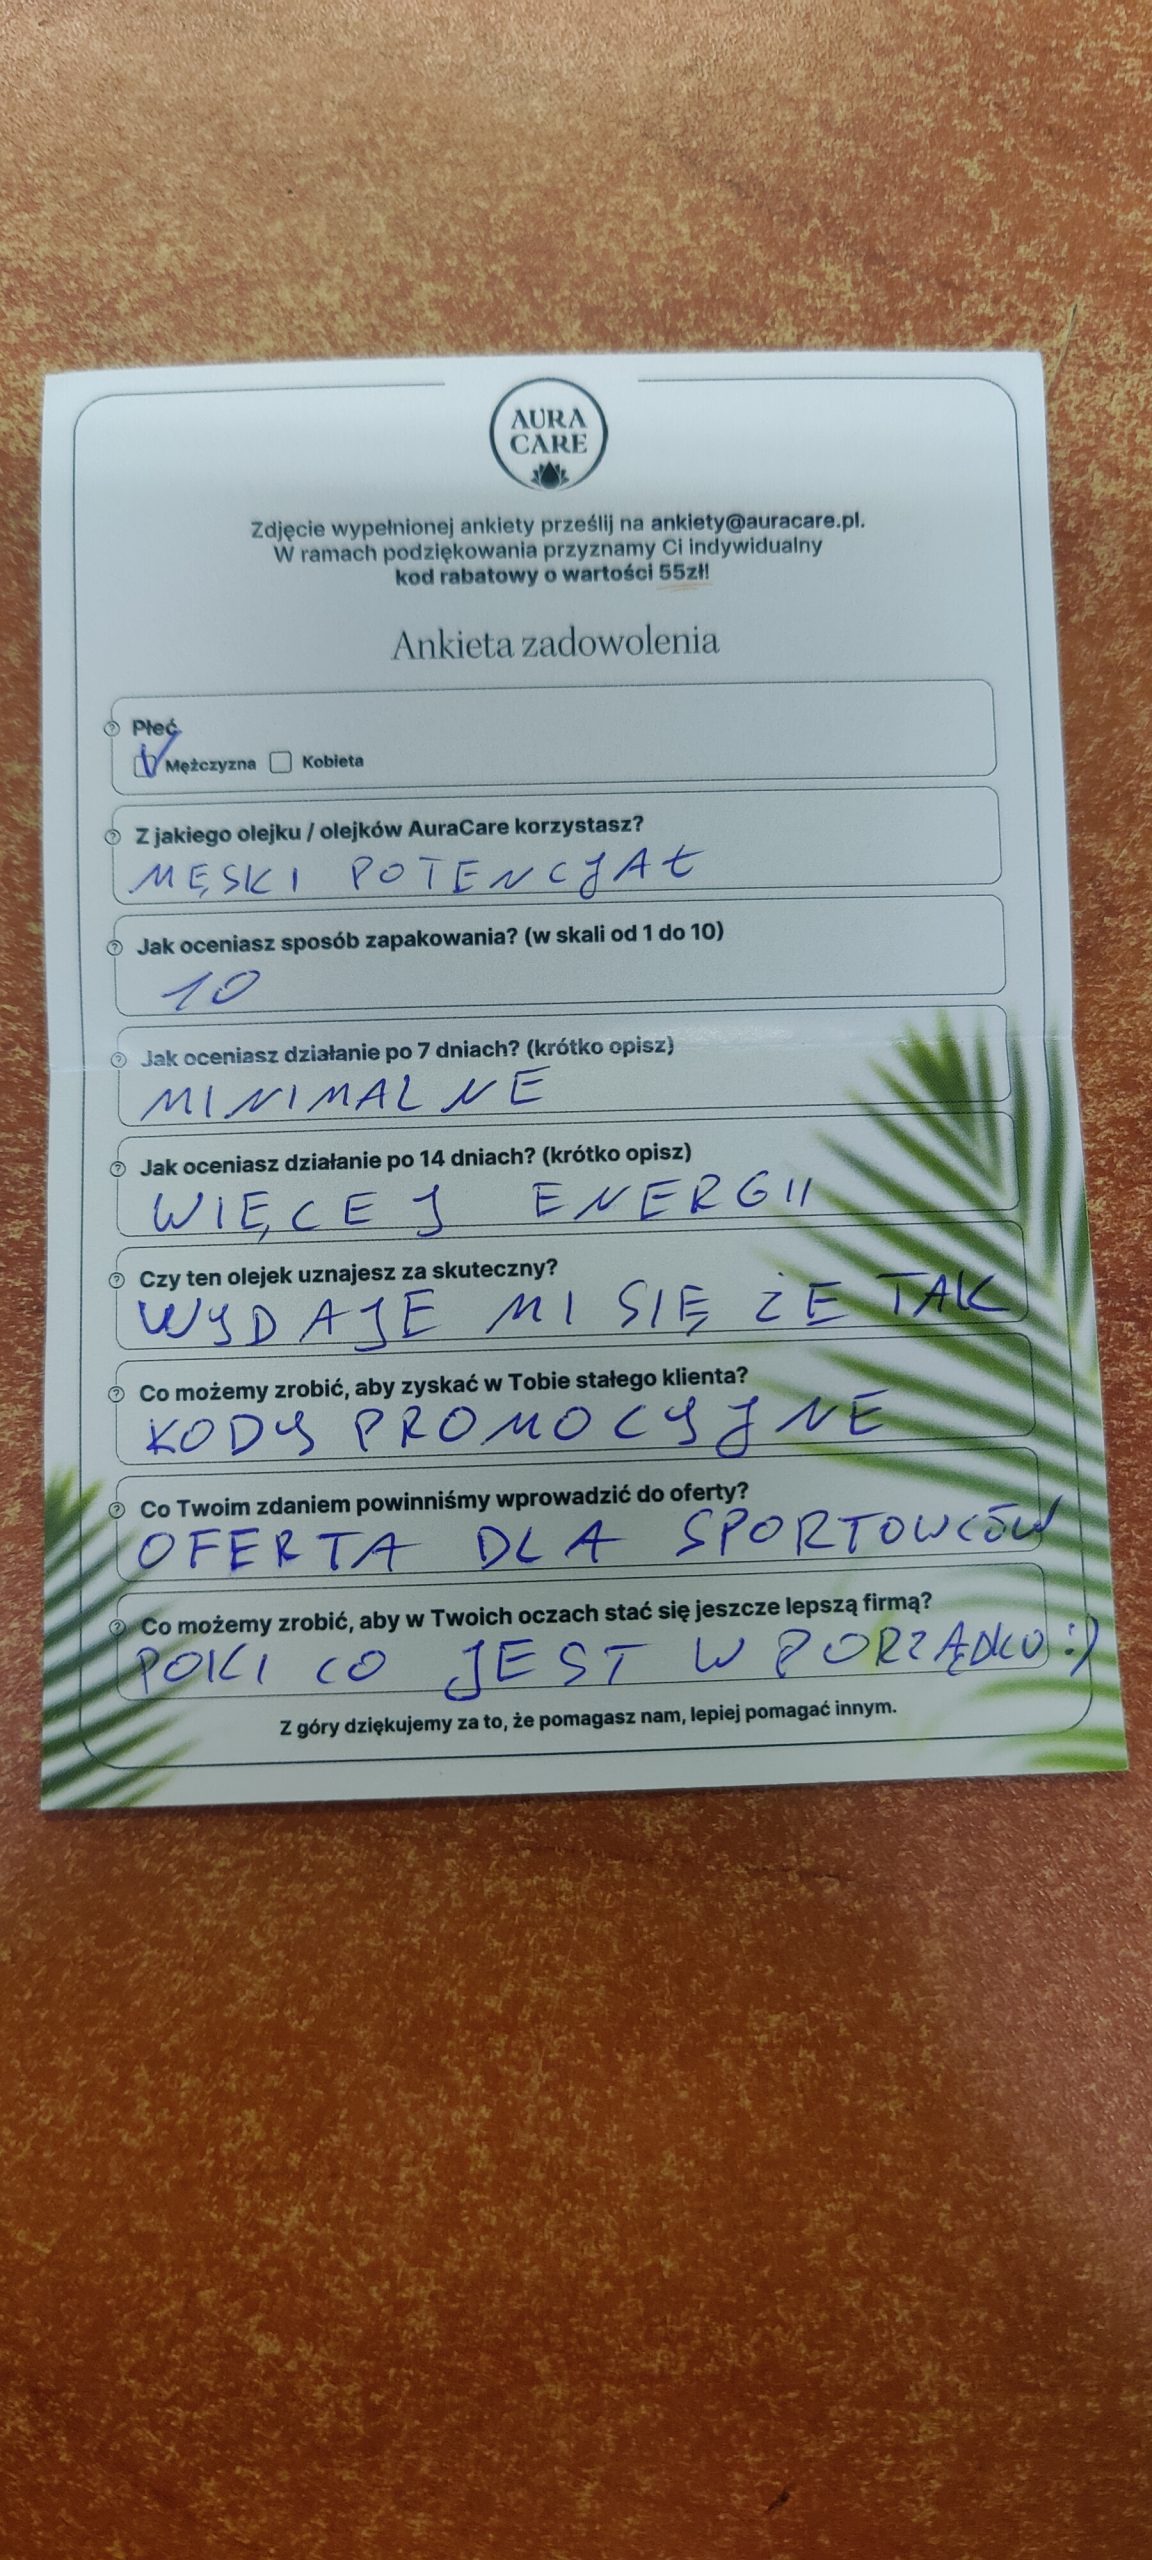 AURA
CARE
Zdjęcie wypełnionej ankiety prześlij na ankiety@auracare.pl.
W ramach podziękowania przyznamy Ci indywidualny
kod rabatowy o wartości 55zł!
Ankieta zadowolenia
Płeć
Mężczyzna Kobieta
Z jakiego olejku / olejków AuraCare korzystasz?
MĘSKI POTENCJAŁ
Jak oceniasz sposób zapakowania? (w skali od 1 do 10)
10
Jak oceniasz działanie po 7 dniach? (krótko opisz)
MINIMALNE
Jak oceniasz działanie po 14 dniach? (krótko opisz)
WIĘCEJ ENERGII
Czy ten olejek uznajesz za skuteczny?
WYDAJE MI SIĘ ŻE TAK
Co możemy zrobić, aby zyskać w Tobie stałego klienta?
KODY PROMOCYJNE
Co Twoim zdaniem powinniśmy wprowadzić do oferty?
OFERTA DLA SPORTOWCÓW
Co możemy zrobić, aby w Twoich oczach stać się jeszcze lepszą firmą?
POKI CO JEST W PORZĄDKU :)
Z góry dziękujemy za to, że pomagasz nam, lepiej pomagać innym.